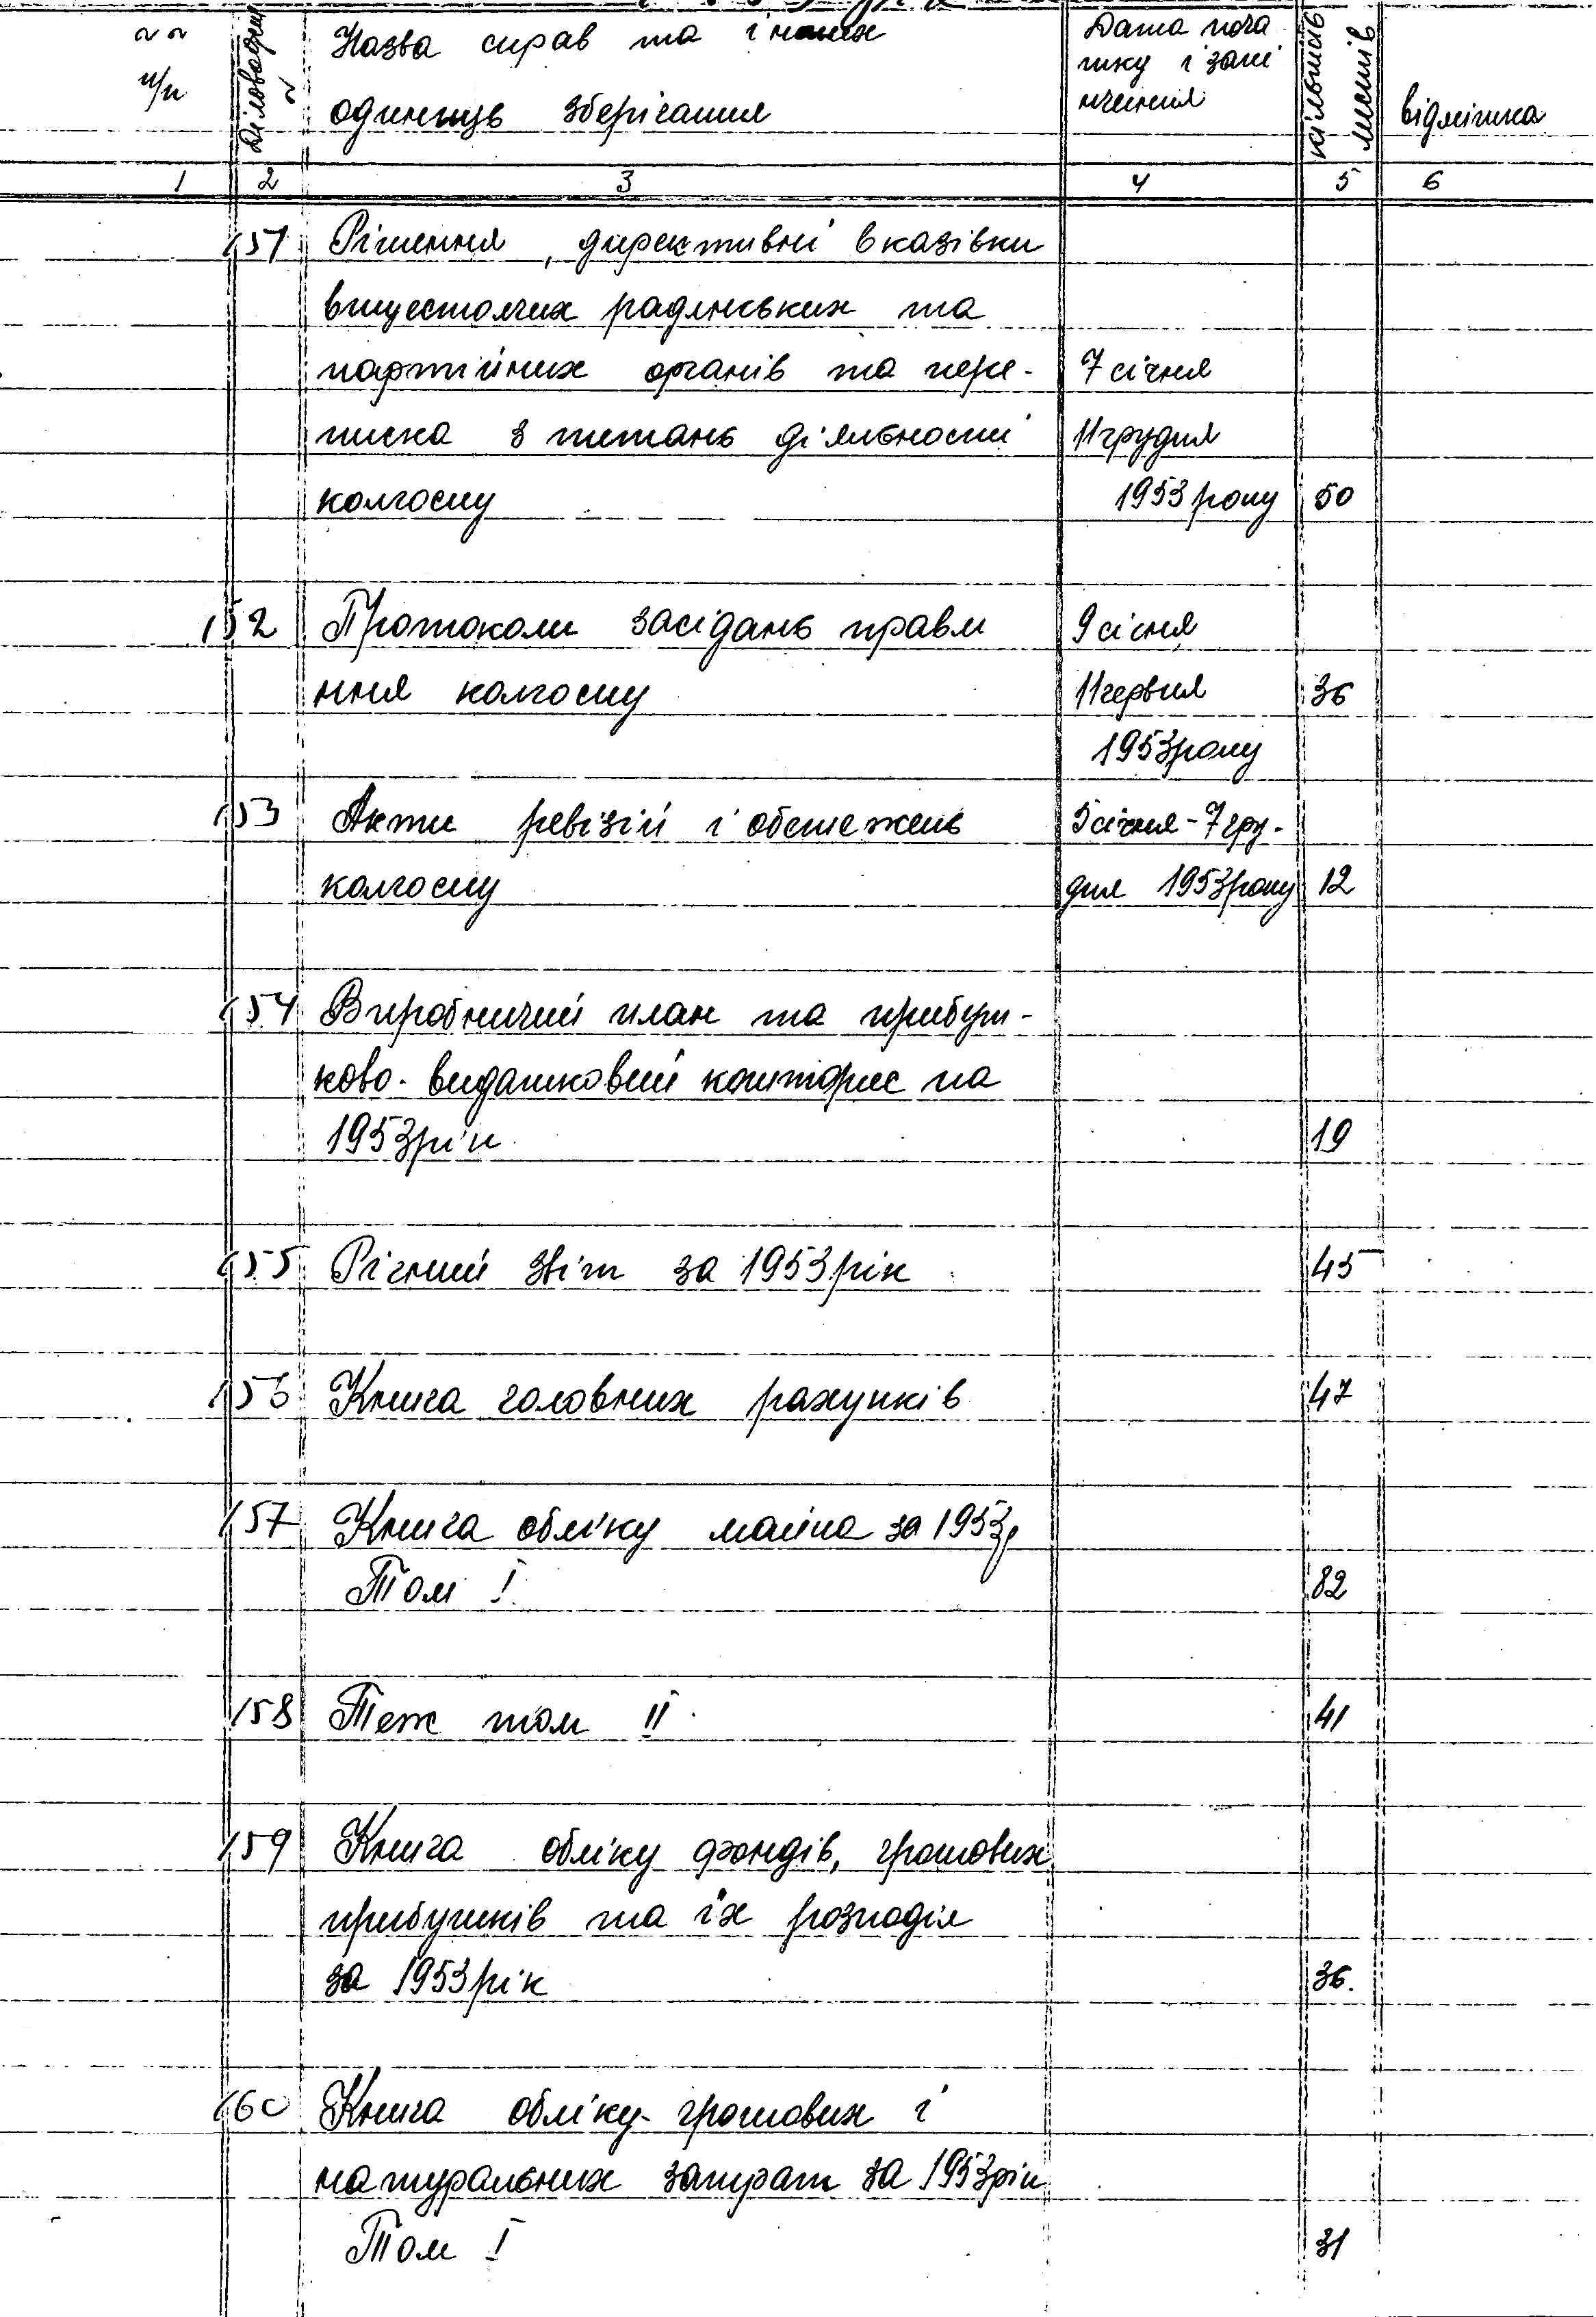 №№ п/п
Діловодний №
Назва справ та інших
одиниць зберігання
Дата поча
тку і закі
нчення
кількість листів
відмітка
1 2 3 4 5 6
151 Рішення, директивні вказівки
вищестоячих радянських та
партійних органів та пере- 7 січня
писка з питань діяльності 11 грудня
колгоспу 1953 року 50
152 Протоколи засідань правлі 9 січня
ння колгоспу 11 червня 36
1953 року
153 Акти ревізій і обстежень 5 січня - 7 гру-
колгоспу дня 1953 року 12
154 Виробничий план та прибут-
ково-видатковий кошторис на
1953 рік 19
155 Річний звіт за 1953 рік 45
156 Книга головних рахунків 47
157 Книга обліку майна за 1953 р
Том I 82
158 Теж том II 41
159 Книга обліку фондів, грошових
прибутків та їх розподіл
за 1953 рік 36.
160 Книга обліку грошових і
натуральних затрат за 1953 рік
Том I 31